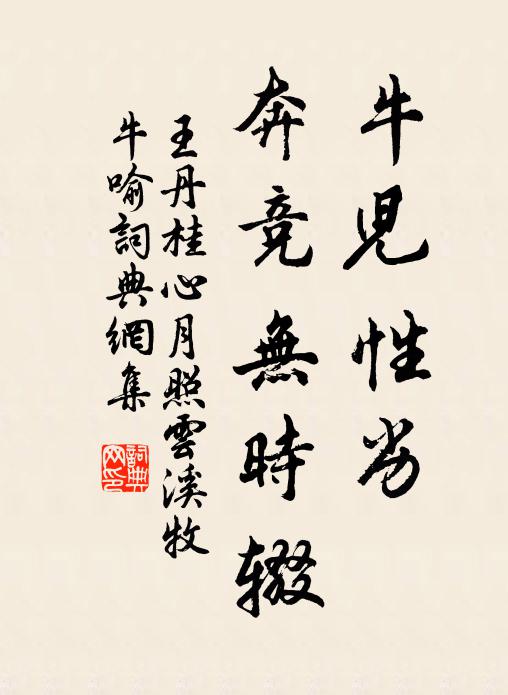 牛児性劣
奔競無時辍
王丹桂心月照雲溪牧
牛喻詞典網集
詞典网印